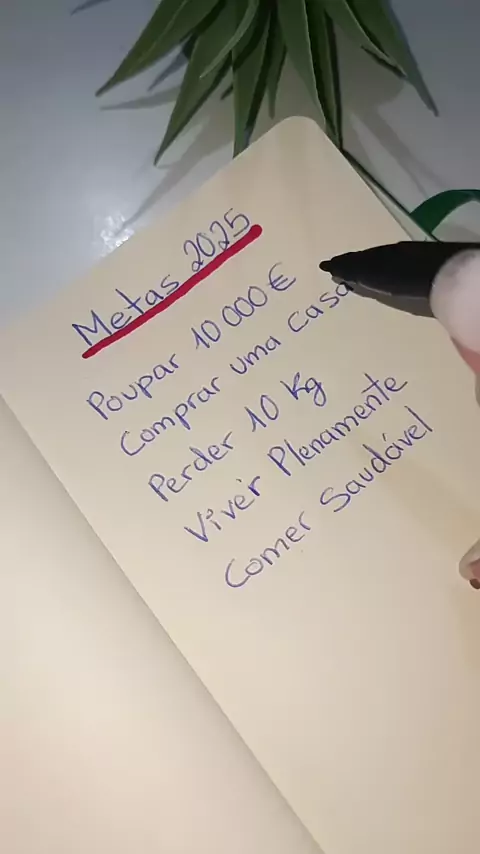 Metas 2025
Poupar 10 000 €
Comprar uma casa
Perder 10 Kg
Viver Plenamente
Comer Saudável